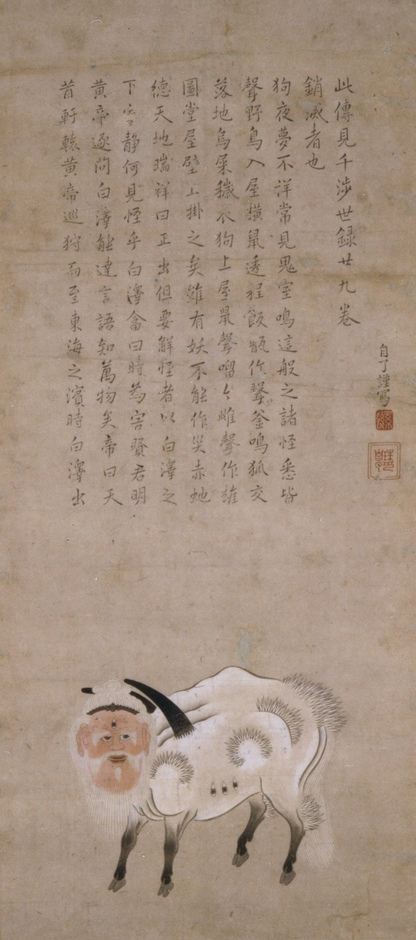 昔軒轅黄帝巡狩而至東海之濱時白澤出
黄帝逐問白澤能達言語知萬物矣帝曰天
下安静何見怪乎白澤畣曰時為害賢君明
德天地瑞祥曰正出但要解怪者以白澤之
圖堂屋壁上掛之矣雖有妖不能作災赤虵
落地烏屎穢衣狗上屋鼠聲々雌聲作雄
聲野鳥入屋鼠透飯甑作聲釜鳴狐交
狗夜夢不祥常見鬼室鳴這般之諸怪悉皆
銷滅者也
此傳見千涉世録廿九卷
自了謹寫